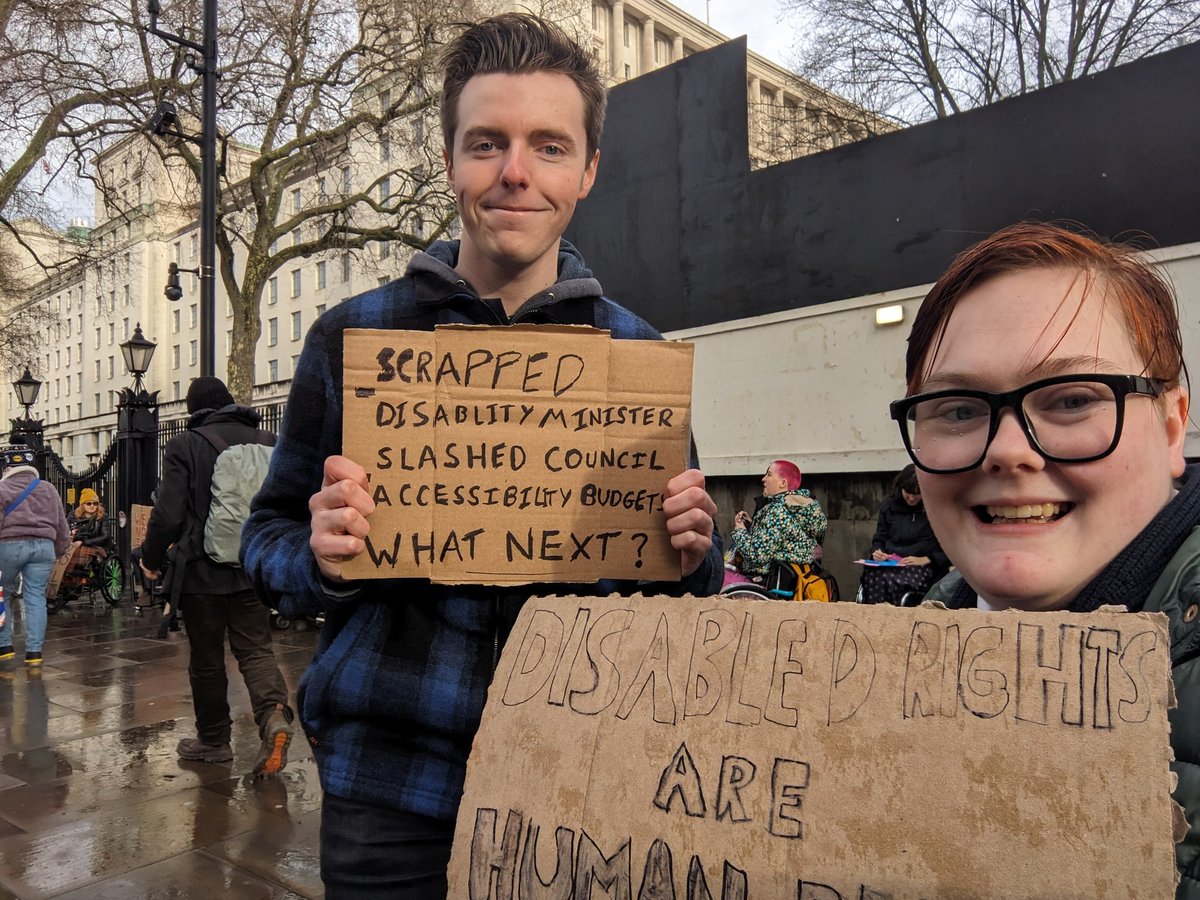 SCRAPPED
DISABLITY MINISTER
SLASHED COUNCIL
ACCESSIBILITY BUDGETS
WHAT NEXT?
DISABLED RIGHTS
ARE
HUMAN